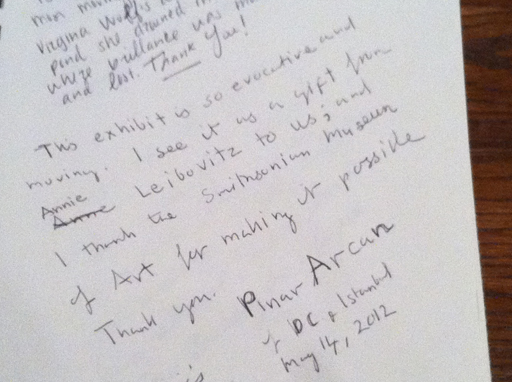 Virginia Woolf's
pond she drowned in
whose brilliance was
and lost. Thank You!
This exhibit is so evocative and
moving. I see it as a gift from
Annie
Anne Leibovitz to us; and
I thank the Smithsonian Museum
of Art for making it possible
Thank you. Pinar Arcan
of DC & Istanbul
May 14, 2012